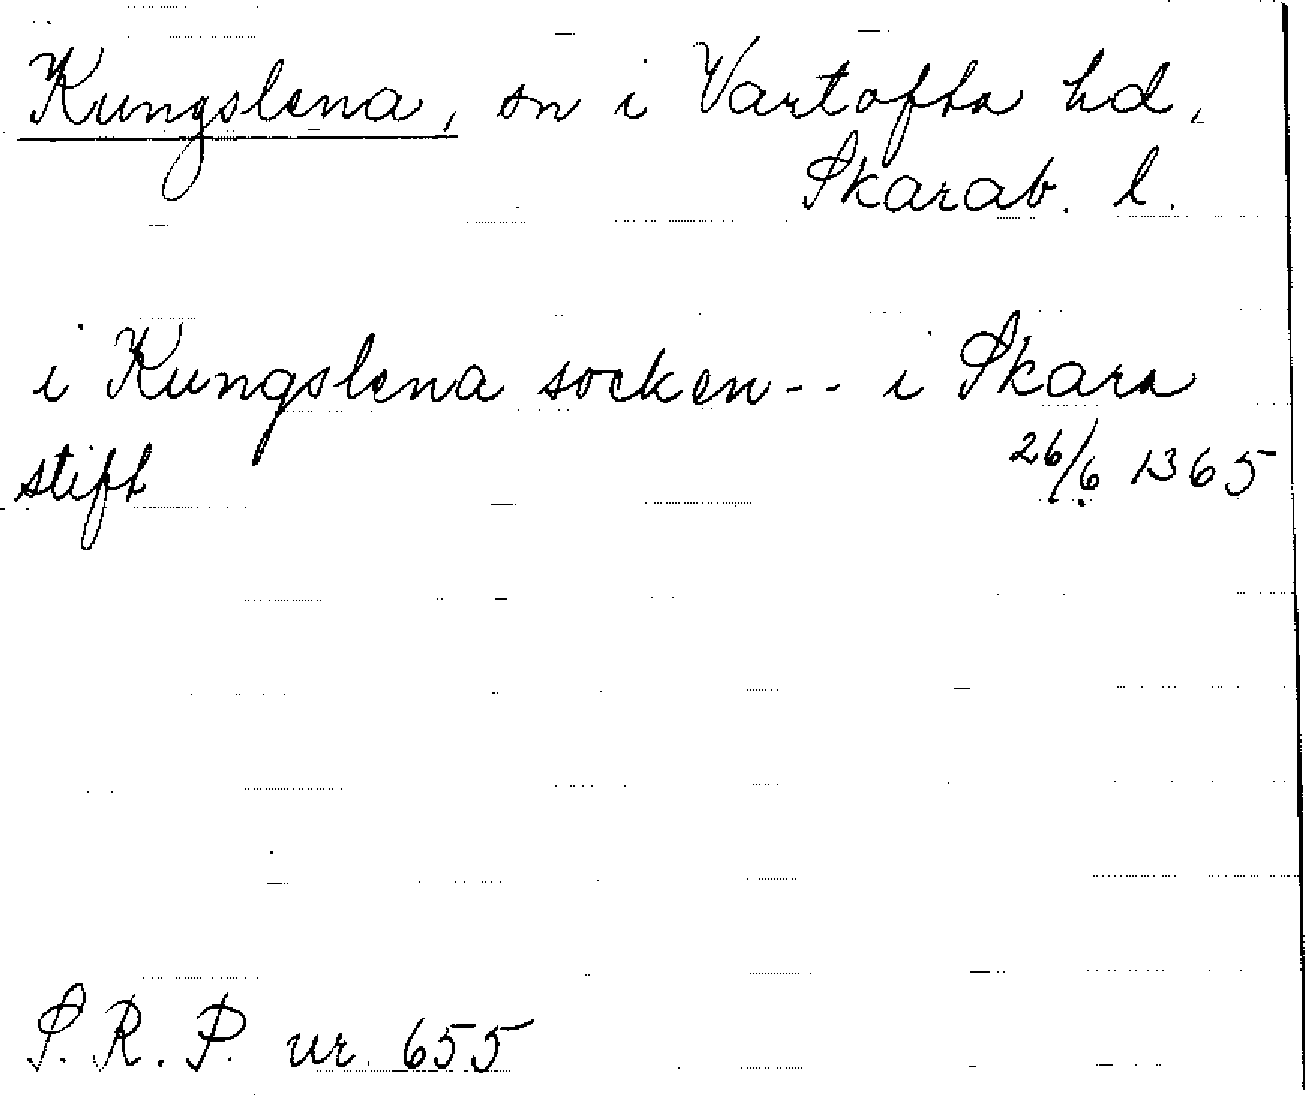 Kungslena, sn i Vartofta hd,
Skarab. l.
i Kungslena socken -- i Skara
stift 26/6 1365
S.R.P. nr. 655